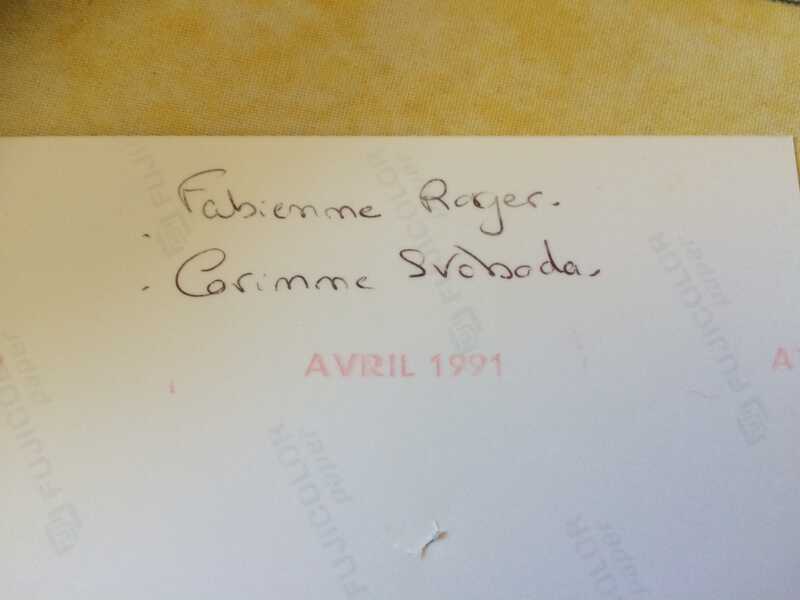 Fabienne Roger.
. Corinne Svoboda.
AVRIL 1991
FUJICOLOR paper
FUJICOLOR paper
FUJICOLOR paper
FUJICOLOR paper
FUJICOLOR paper
FUJICOLOR paper